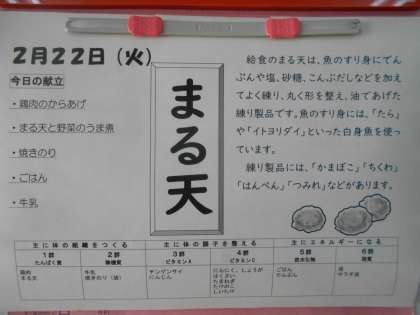 2月22日（火）
今日の献立
・鶏肉のからあげ
・まる天と野菜のうま煮
・焼きのり
・ごはん
・牛乳
まる天
給食のまる天は、魚のすり身にでん
ぷんや塩、砂糖、こんぶだしなどを加え
てよく練り、丸く形を整え、油であげた
練り製品です。魚のすり身には、「たら」
や「イトヨリダイ」といった白身魚を使っ
ています。
練り製品には、「かまぼこ」「ちくわ」
「はんぺん」「つみれ」などがあります。
主に体の組織をつくる 主に体の調子を整える 主にエネルギーになる
1群 2群 3群 4群 5群 6群
たんぱく質 無機質 ビタミンA ビタミンC 炭水化物 脂質
鶏肉
まる天
牛乳
焼きのり
チンゲンサイ
にんじん
にんにく、しょうが
はくさい
たまねぎ
たけのこ
しいたけ
ごはん
でんぷん
油
サラダ油